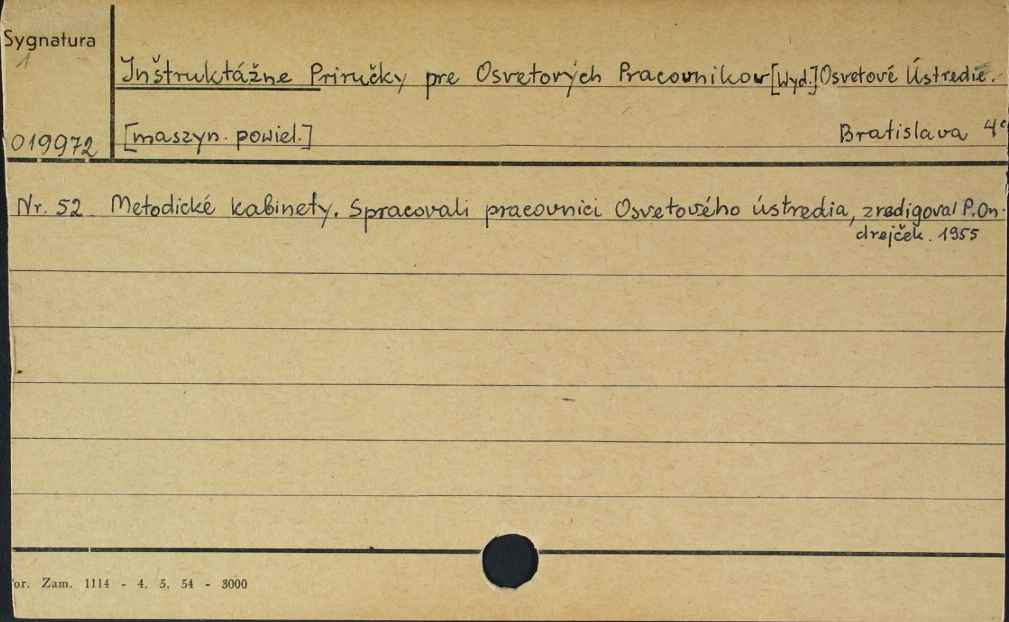 Sygnatura
1
Inštruktážne Priručky pre Osvetových Pracovnikov [Wyd.] Osvetové Ústredie.
019972 [maszyn. powiel.] Bratislava 4°
Nr. 52 Metodické kabinety. Spracovali pracovnici Osvetového ústredia, zredigoval P. On-
drejček. 1955
or. Zam. 1114 - 4. 5. 54 - 3000